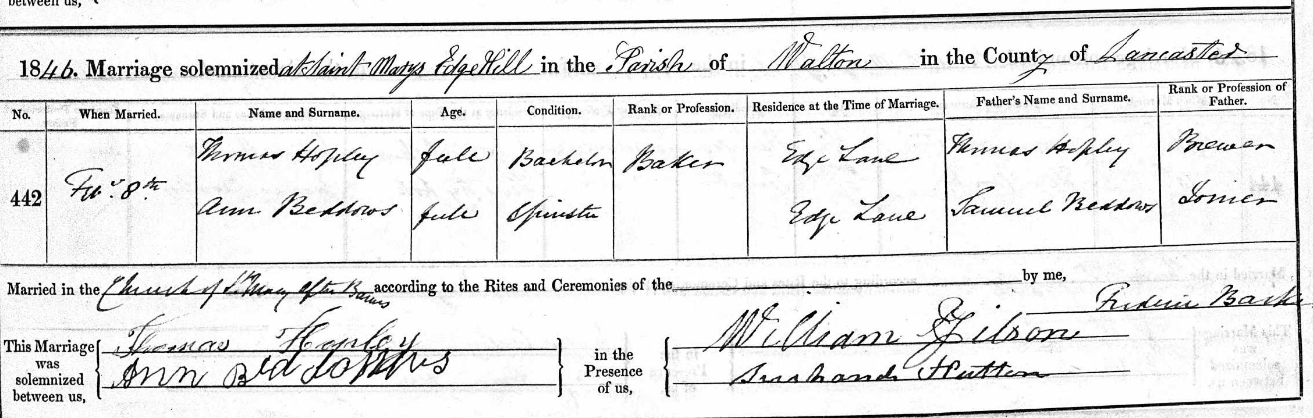 between us,
1846. Marriage solemnized at Saint Marys Edge Hill in the Parish of Walton in the County of Lancaster
No. When Married. Name and Surname. Age. Condition. Rank or Profession. Residence at the Time of Marriage. Father's Name and Surname. Rank or Profession of Father.
Thomas Hopley full Bachelor Baker Edge Lane Thomas Hopley Brewer
442 8th
Ann Beddows full Spinster Edge Lane Samuel Beddows Joiner
Married in the Church of St Mary after Banns according to the Rites and Ceremonies of the by me,
Frederic
This Marriage was solemnized between us,
Thomas Hopley
Ann Beddows
in the Presence of us,
William
Hutton